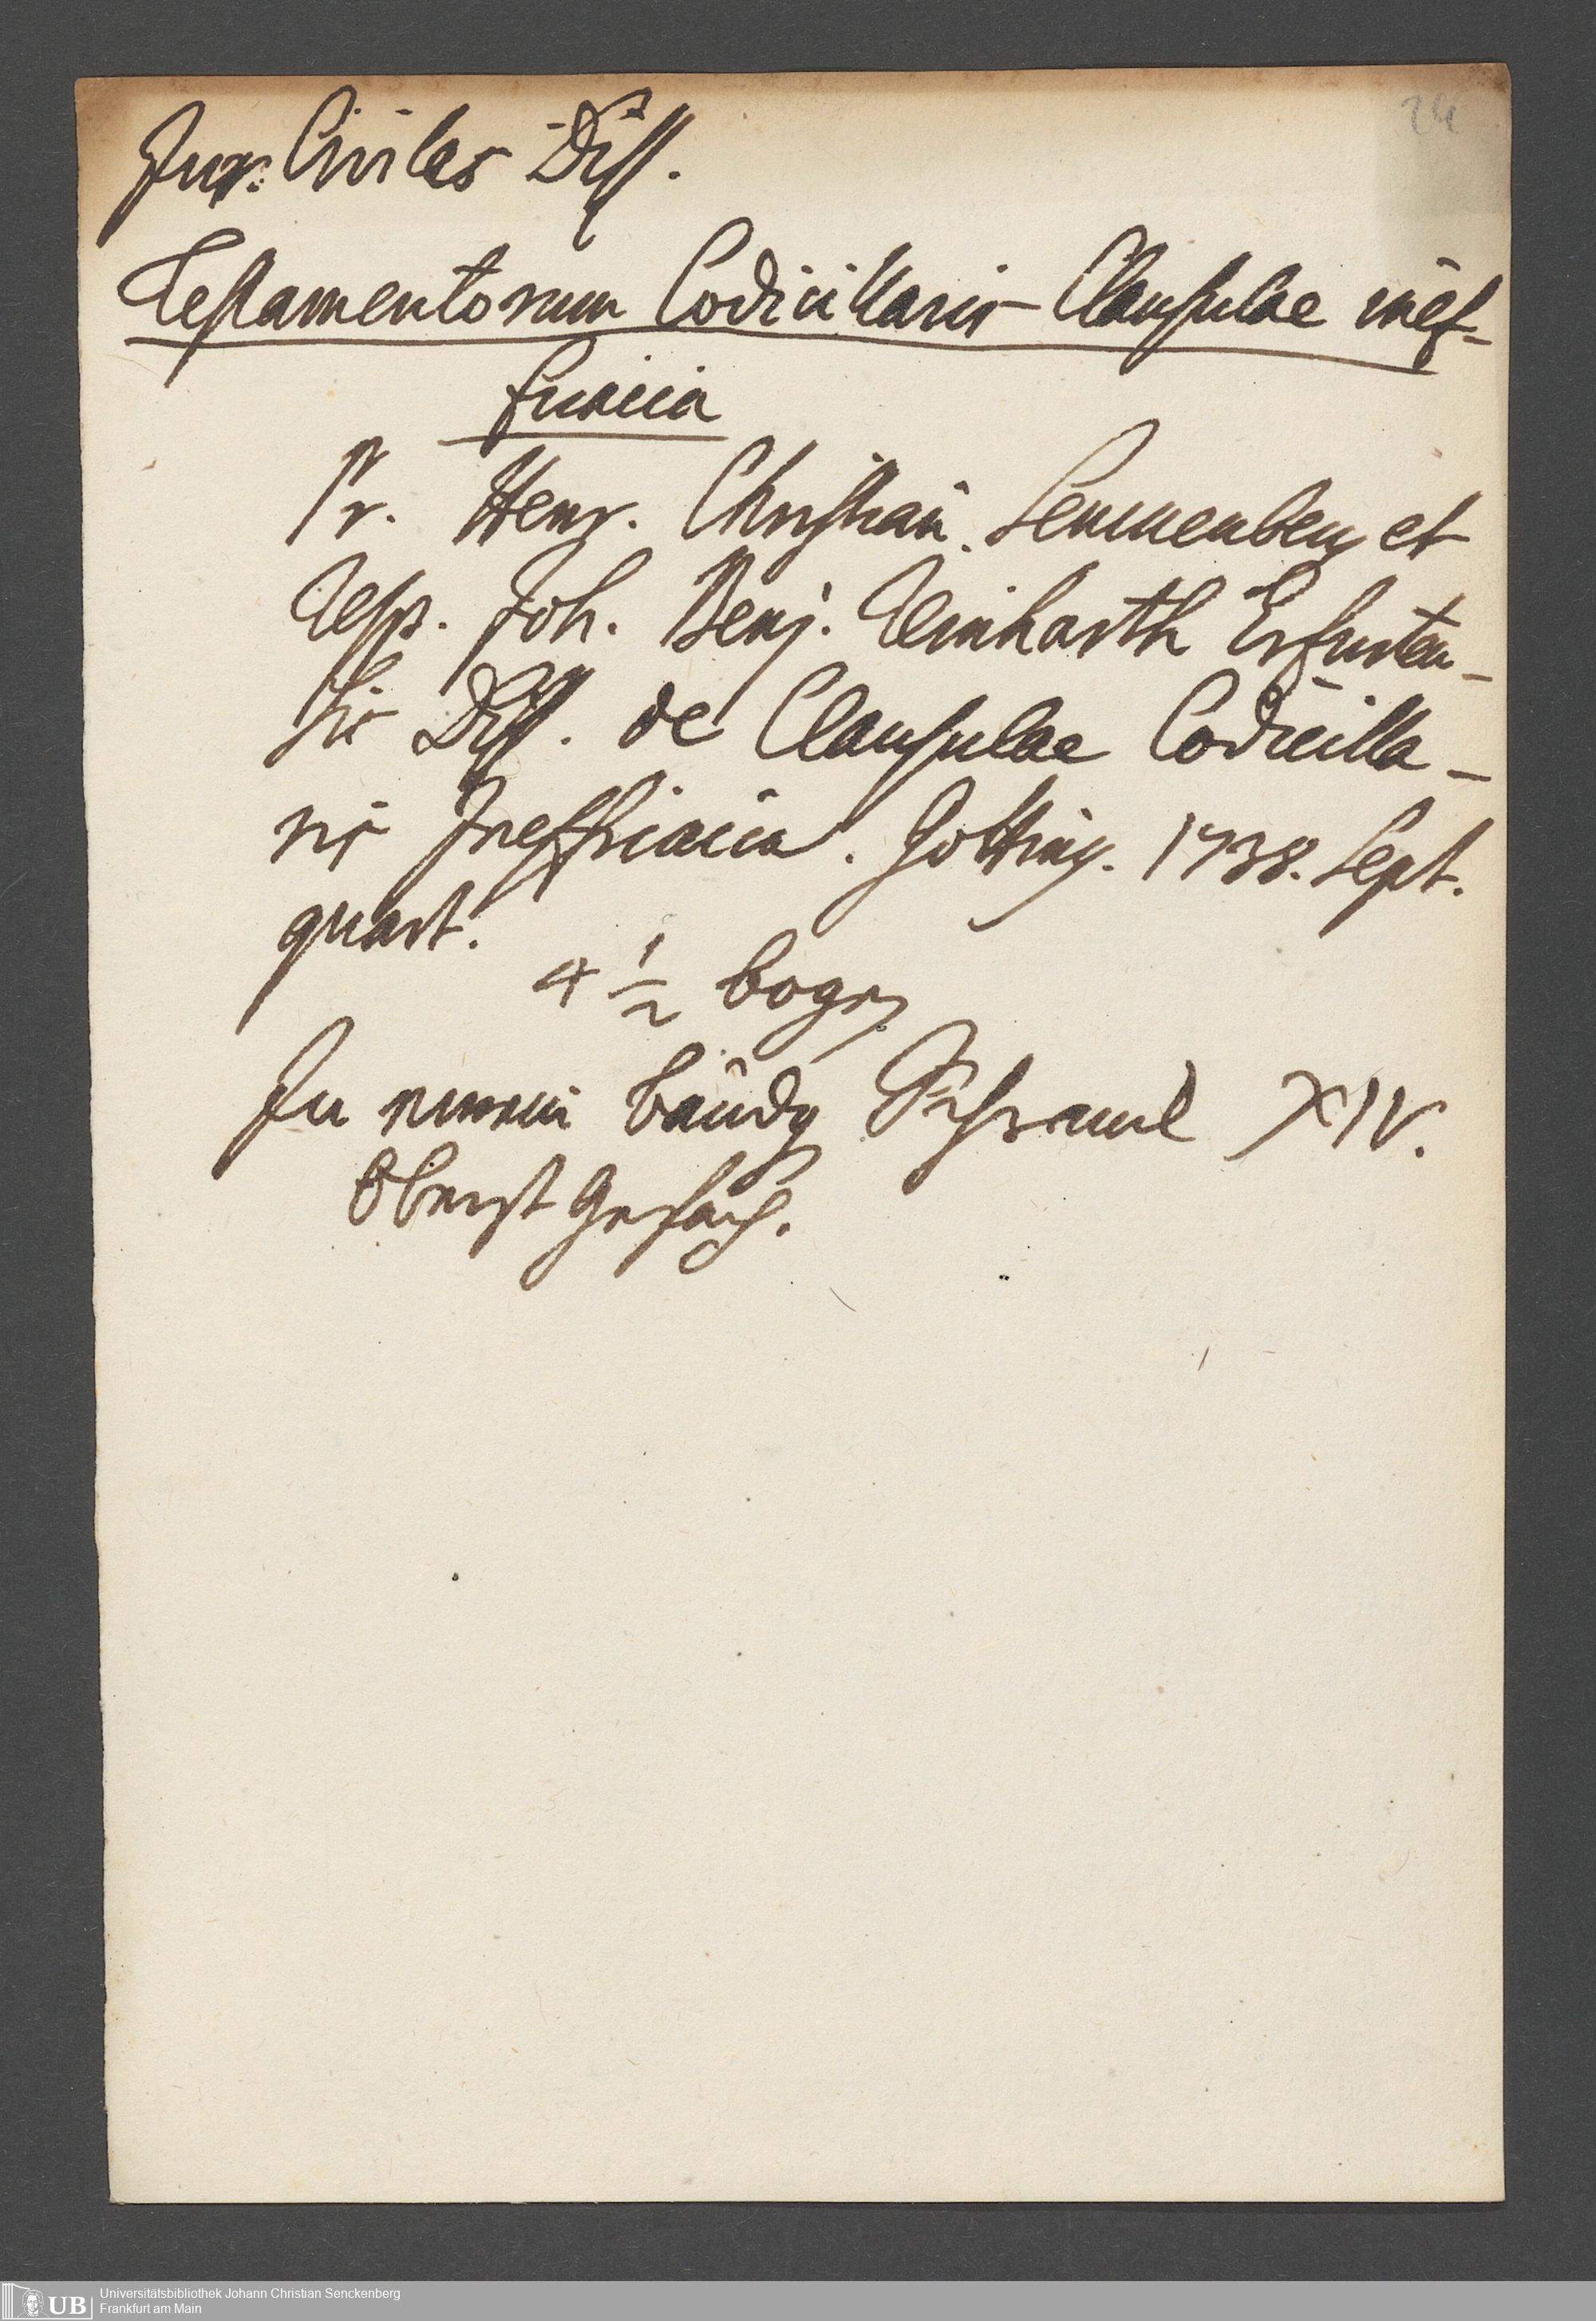 24
Jur. Civiles Diss.
Testamentorum Codicillaris Clausulae inef-
ficacia
Pr. Henr. Christian. Senckenberg et
Resp. Joh. Benj. Reinharth Erfurten-
sis Diss. de Clausulae Codicilla-
ris Inefficacia. Gotting. 1738. Sept.
quart.
4 1/2 bogen
In einem bändgen Schranck XIV.
Oberst Gefach.
UB Universitätsbibliothek Johann Christian Senckenberg
Frankfurt am Main